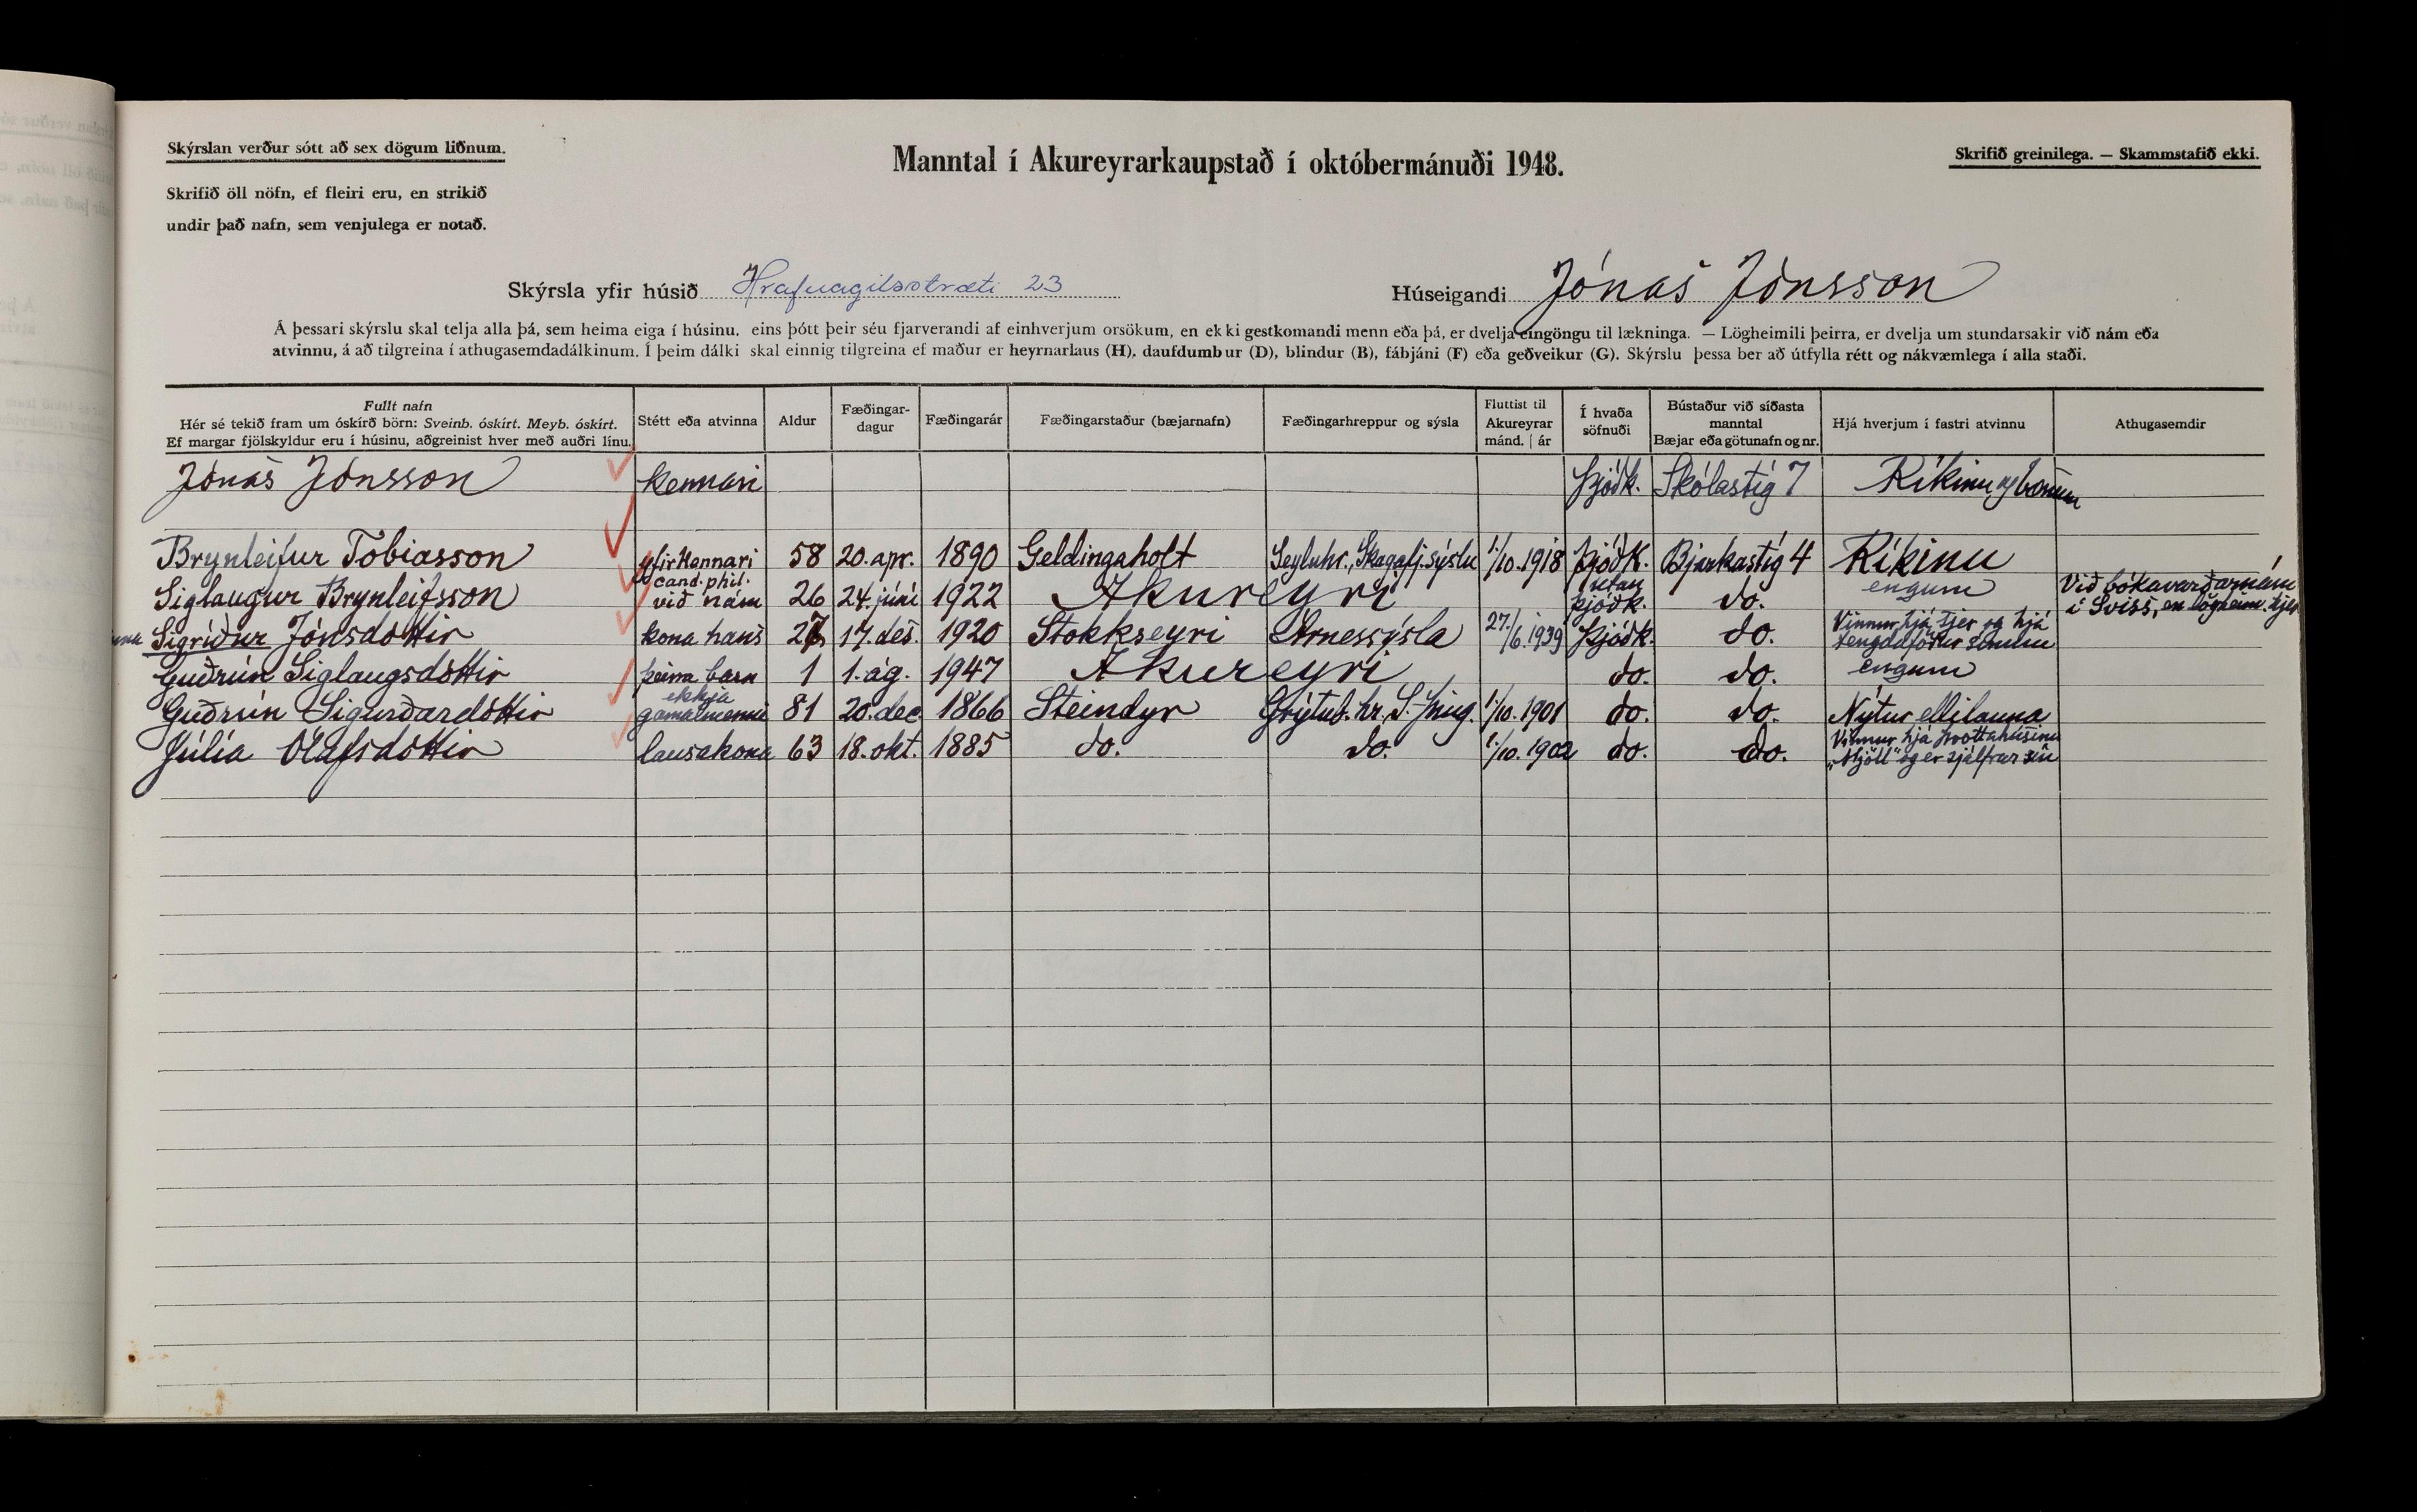 Skýrslan verður sótt að sex dögum liðnum.
Manntal í Akureyrarkaupstað í októbermánuði 1948.
Skrifið greinilega. — Skammstafið ekki.
Skrifið öll nöfn, ef fleiri eru, en strikið
undir það nafn, sem venjulega er notað.
Skýrsla yfir húsið Hrafnagilsstræti 23
Húseigandi Jónas Jónsson
Á þessari skýrslu skal telja alla þá, sem heima eiga í húsinu, eins þótt þeir séu fjarverandi af einhverjum orsökum, en ekki gestkomandi menn eða þá, er dvelja eingöngu til lækninga. — Lögheimili þeirra, er dvelja um stundarsakir við nám eða
atvinnu, á að tilgreina í athugasemdadálkinum. Í þeim dálki skal einnig tilgreina ef maður er heyrnarlaus (H), daufdumbur (D), blindur (B), fábjáni (F) eða geðveikur (G). Skýrslu þessa ber að útfylla rétt og nákvæmlega í alla staði.
Fullt nafn
Hér sé tekið fram um óskírð börn: Sveinb. óskírt. Meyb. óskírt.
Ef margar fjölskyldur eru í húsinu, aðgreinist hver með auðri línu.
Stétt eða atvinna
Aldur
Fæðingar-
dagur
Fæðingarár
Fæðingarstaður (bæjarnafn)
Fæðingarhreppur og sýsla
Fluttist til
Akureyrar
mánd. | ár
Í hvaða
söfnuði
Bústaður við síðasta
manntal
Bæjar eða götunafn og nr.
Hjá hverjum í fastri atvinnu
Athugasemdir
Jónas Jónsson kennari þjóðk. Skólastíg 7 Ríkinu og bænum
Brynleifur Tobiasson yfirkennari 58 20. apr. 1890 Geldingaholt Seyluhr., Skagafj.sýslu 1/10. 1918 þjóðk. Bjarkastíg 4 Ríkinu
Siglaugur Brynleifsson cand. phil. við nám 26 24. júní 1922 Akureyri utan þjóðk. do. engum Við bókavarðarnám
í Sviss, en lögheim. hjer
Sigríður Jónsdóttir kona hans 27 17. des. 1920 Stokkseyri Árnessýsla 27/6. 1939 þjóðk. do. Vinnur hjá sjer og hjá
tengdaföður sínum
Guðrún Siglaugsdóttir þeirra barn 1 1. ág. 1947 Akureyri do. do. engum
Guðrún Sigurðardóttir ekkja gamalmenni 81 20. dec. 1866 Steindyr Grýtub. hr. S.-Þing. 1/10. 1901 do. do. Nýtur ellilauna
Júlía Ólafsdóttir lausakona 63 18. okt. 1885 do. do. 1/10. 1902 do. do. Vinnur hjá þvottahúsinu
„Mjöll" og er sjálfrar sín